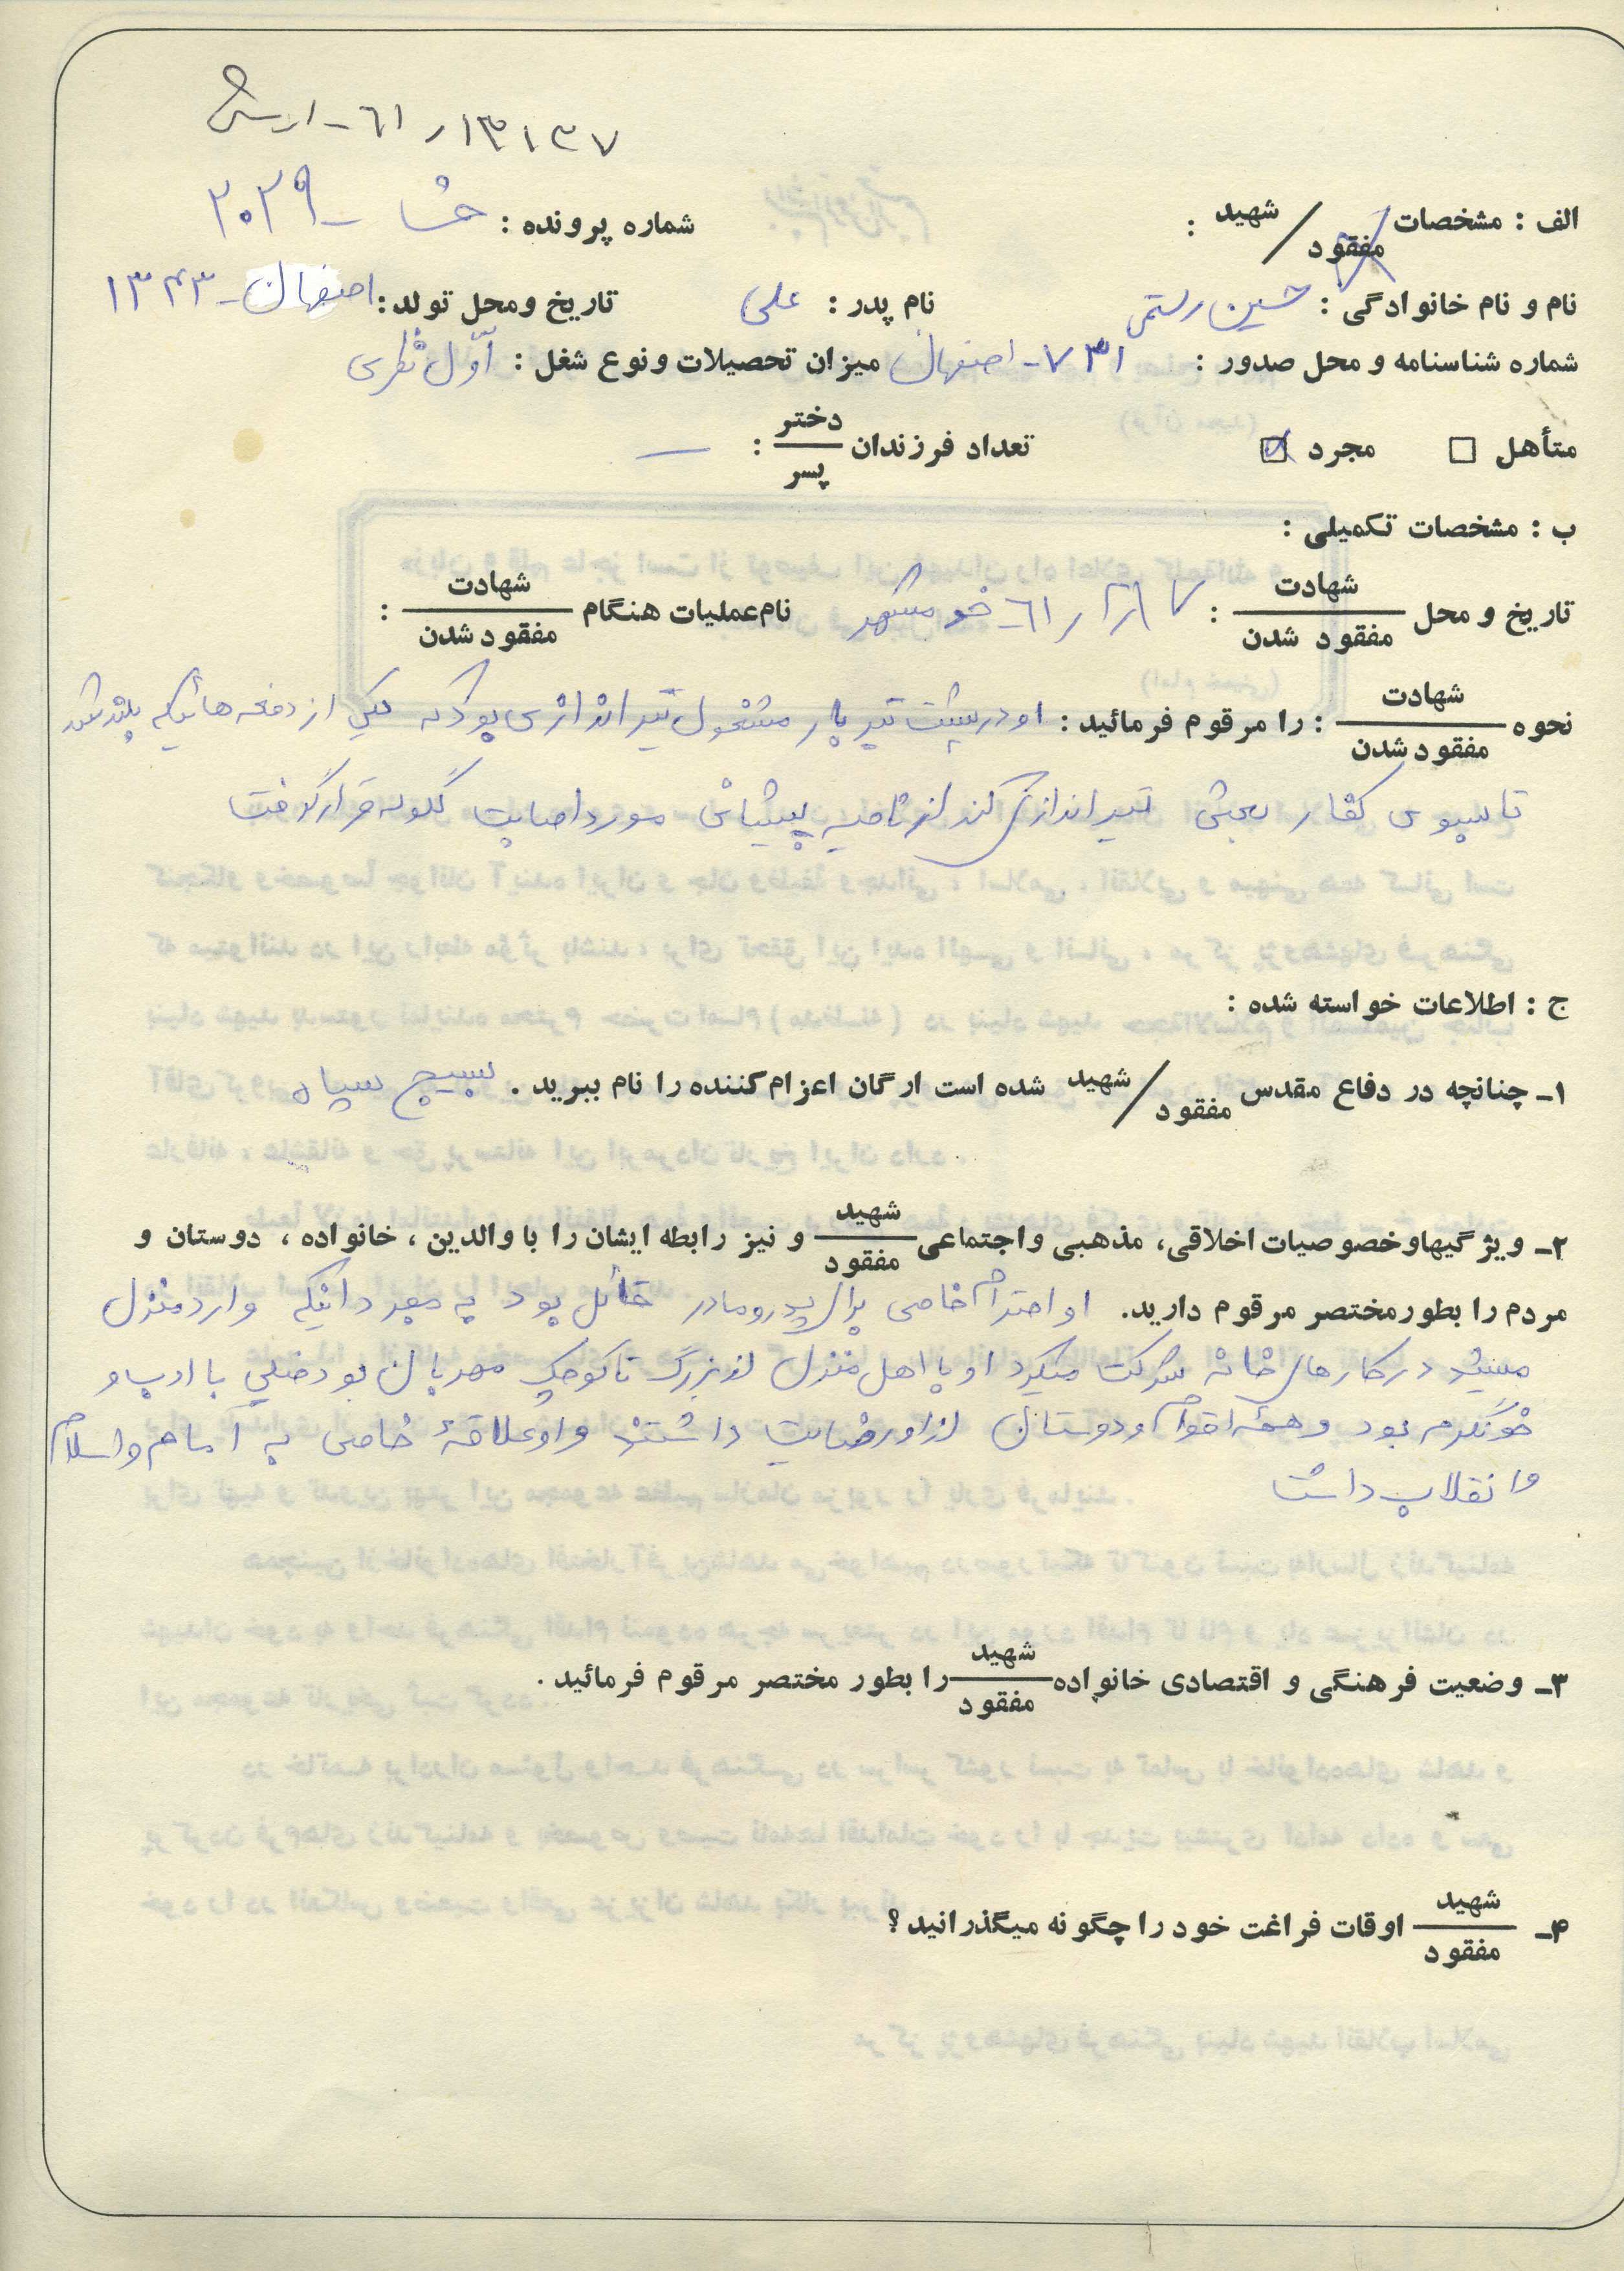 ۱۳۱۳۷ / ۶۱ - ارتش
الف : مشخصات شهید / مفقود : شماره پرونده : ۲۰۲۹ -
نام و نام خانوادگی : حسین رستمی نام پدر : علی تاریخ ومحل تولد : اصفهان - ۱۳۴۳
شماره شناسنامه و محل صدور : ۷۳۱ - اصفهان میزان تحصیلات ونوع شغل : اوّل نظری
متأهل □ مجرد ☑ تعداد فرزندان دختر / پسر : —
ب : مشخصات تکمیلی :
تاریخ و محل شهادت / مفقود شدن : ۶۱ - خرمشهر نام عملیات هنگام شهادت / مفقود شدن :
نحوه شهادت / مفقود شدن : را مرقوم فرمائید : او در پشت تیربار مشغول تیراندازی بود که یکی از دفعه هائیکه بلند شد
تا بسوی کفار بعثی تیراندازی کند از ناحیه پیشانی مورد اصابت گلوله قرار گرفت
ج : اطلاعات خواسته شده :
۱ـ چنانچه در دفاع مقدس شهید / مفقود شده است ارگان اعزام کننده را نام ببرید . بسیج سپاه
۲ـ ویژگیهاوخصوصیات اخلاقی، مذهبی واجتماعی شهید / مفقود و نیز رابطه ایشان را با والدین ، خانواده ، دوستان و
مردم را بطورمختصر مرقوم دارید. او احترام خاصی برای پدر و مادر قائل بود به مجرد اینکه وارد منزل
میشد در کارهای خانه شرکت میکرد او با اهل منزل از بزرگ تا کوچک مهربان بود خیلی با ادب و
خونگرم بود و همه اقوام و دوستان از او رضایت داشتند و او علاقهٔ خاصی به امام و اسلام
و انقلاب داشت
۳ـ وضعیت فرهنگی و اقتصادی خانواده شهید / مفقود را بطور مختصر مرقوم فرمائید .
۴ـ شهید / مفقود اوقات فراغت خود را چگونه میگذرانید ؟